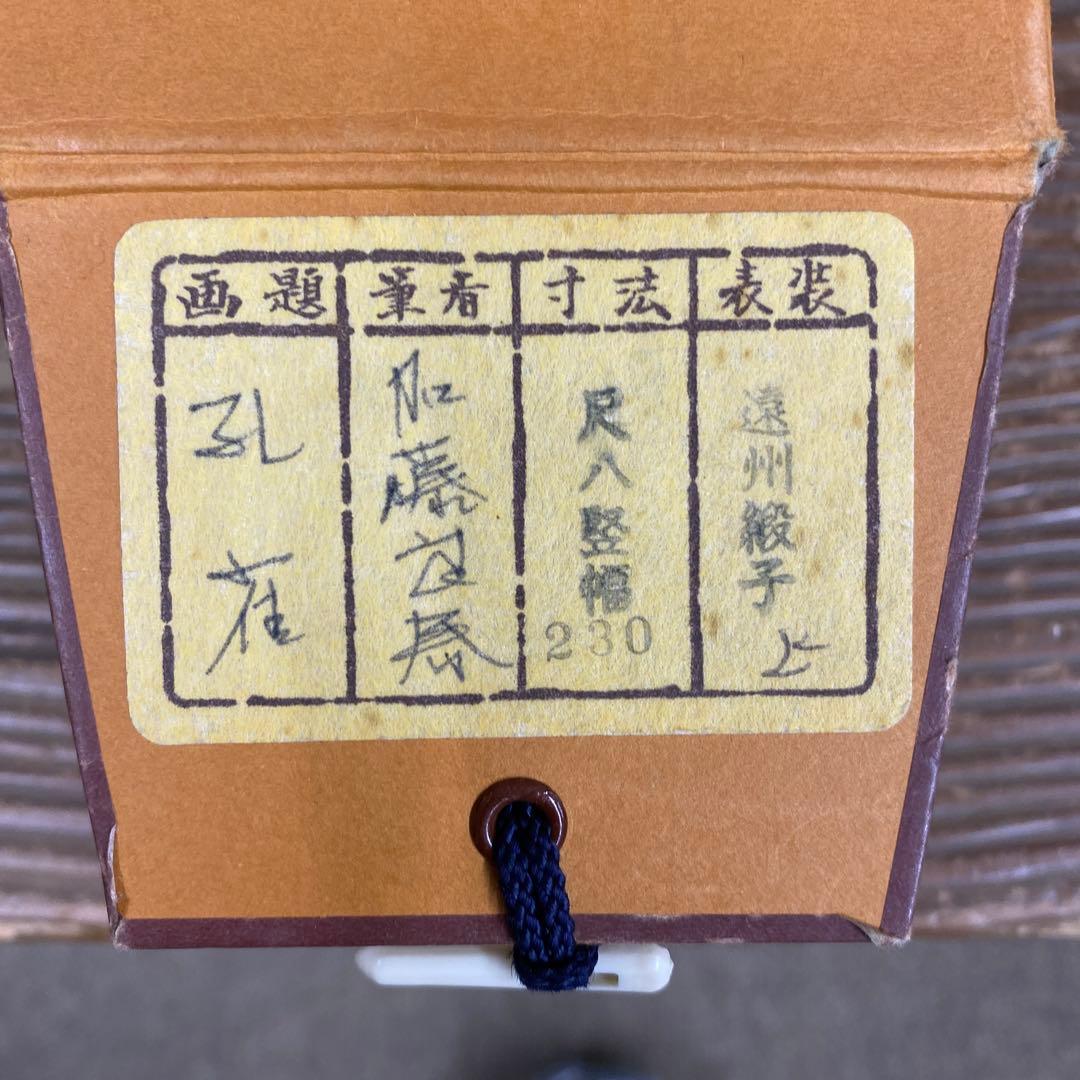 画題
孔雀
筆者
加藤
寸法
尺八竪幅
230
表装
遠州緞子
上